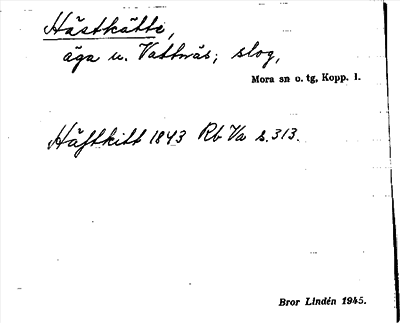 Hästkätti,
äga u. Vattnäs; slog,
Mora sn o. tg, Kopp. l.
Häftkitt 1843 Rb Va s. 313.
Bror Lindén 1945.